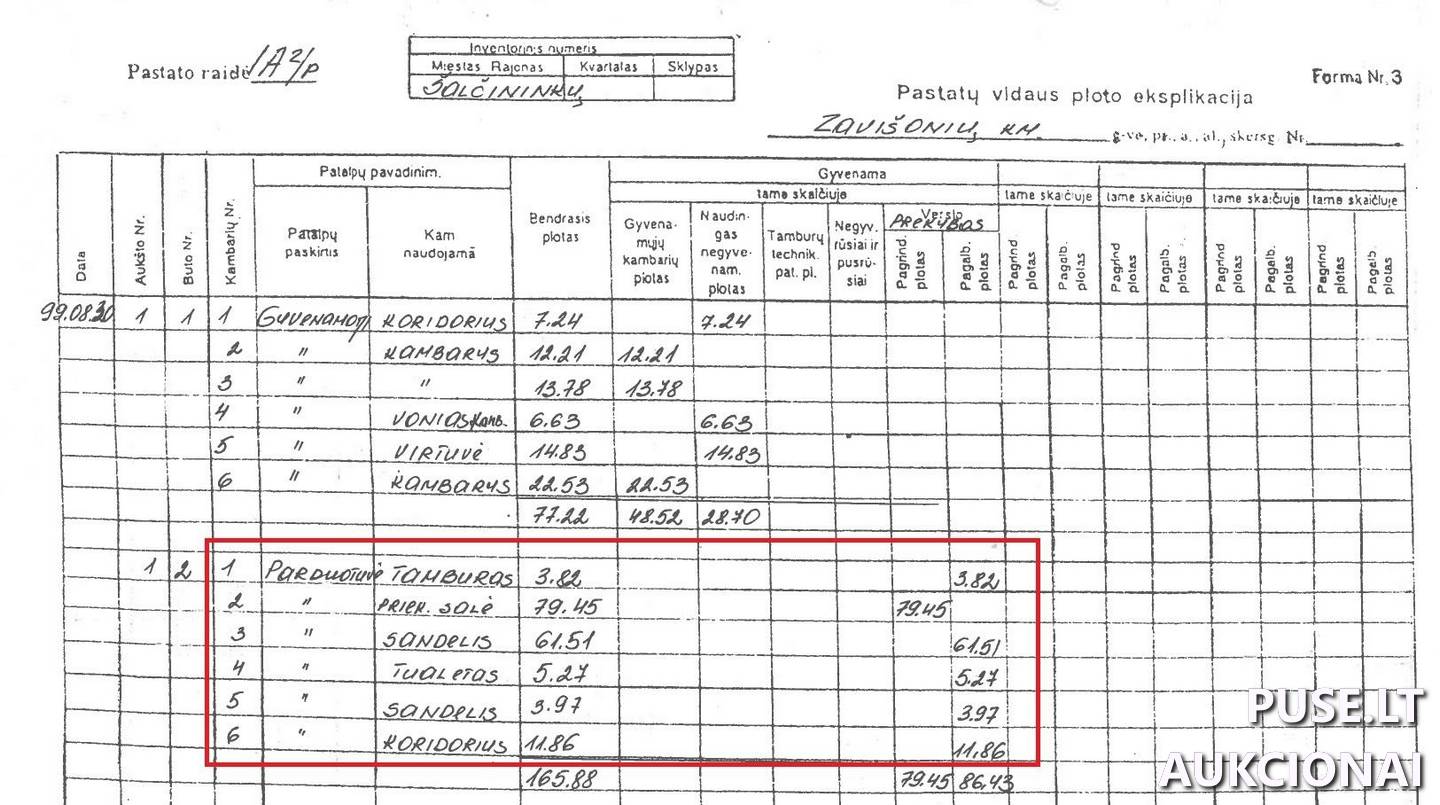 Pastato raidė 1A2/p
Inventorinis numeris
Miestas Rajonas Kvartalas Sklypas
ŠALČININKŲ
Forma Nr. 3
Pastatų vidaus ploto eksplikacija
ZAVIŠONIŲ KM. g-vė, pr., a., al., skersg. Nr.
Data
Aukšto Nr.
Buto Nr.
Kambarių Nr.
Patalpų pavadinim.
Patalpų paskirtis
Kam naudojamā
Bendrasis plotas
Gyvenama
tame skaičiuje
Gyvenamųjų kambarių plotas
Naudingas negyvenam. plotas
Tamburų technik. pat. pl.
Negyv. rūsiai ir pusrūsiai
Verslo
PREKYBOS
Pagrind. plotas
Pagalb. plotas
tame skaičiuje
Pagrind plotas
Pagalb. plotas
tame skaičiuje
Pagrind plotas
Pagalb. plotas
tame skaičiuje
Pagrind plotas
Pagalb. plotas
tame skaičiuje
Pagrind plotas
Pagalb plotas
99.08.30 1 1 1 GYVENAMOJI KORIDORIUS 7.24 7.24
2 " KAMBARYS 12.21 12.21
3 " " 13.78 13.78
4 " VONIOS KAMB. 6.63 6.63
5 " VIRTUVĖ 14.83 14.83
6 " KAMBARYS 22.53 22.53
77.22 48.52 28.70
1 2 1 PARDUOTUVĖ TAMBURAS 3.82 3.82
2 " PREK. SALĖ 79.45 79.45
3 " SANDELIS 61.51 61.51
4 " TUALETAS 5.27 5.27
5 " SANDELIS 3.97 3.97
6 " KORIDORIUS 11.86 11.86
165.88 79.45 86,43
PUSE.LT
AUKCIONAI